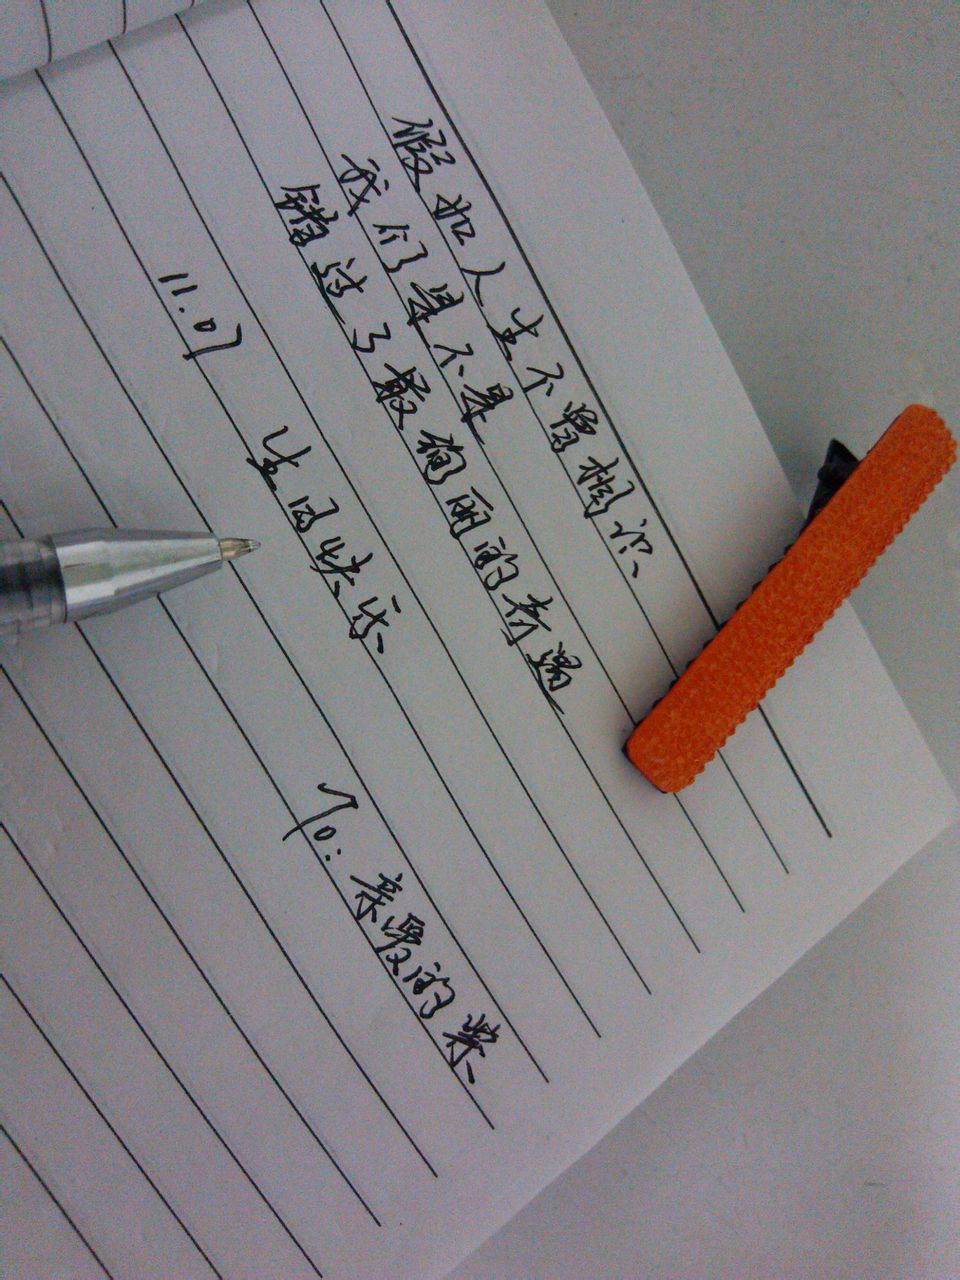 假如人生不曾相识
我们是不是
错过了最绚丽的奇遇
11.07
生日快乐
To:亲爱的柴